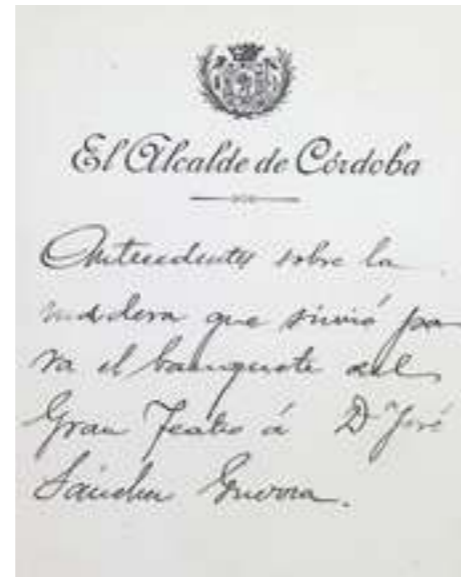 El Alcalde de Córdoba
Antecedentes sobre la
madera que sirvió pa
ra el banquete del
Gran Teatro á Dn José
Sánchez Guerra.